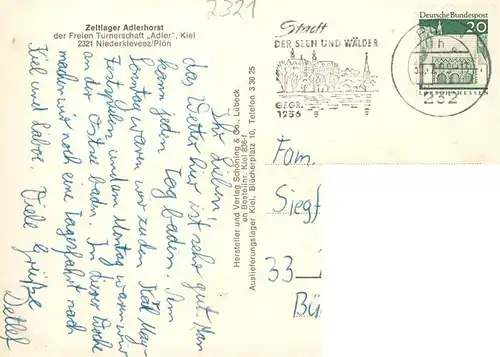 2321
Zeltlager Adlerhorst
der Freien Turnerschaft „Adler", Kiel
2321 Niederkleveez/Plön
Ihr Lieben!
Das Wetter hier ist sehr gut. Man
kann jeden Tag baden. Am
Sonntag waren wir zu den Karl May-
Festspielen und am Montag waren wir
an der Ostsee baden. In dieser Woche
machen wir noch eine Tagesfahrt nach
Kiel und Laboe. Viele Grüße
Detlef
Hersteller und Verlag Schöning & Co., Lübeck
en Bestellnr. Kiel 838-f
Auslieferungslager Kiel, Blücherplatz 10, Telefon 3 30 25
Stadt
DER SEEN UND WÄLDER
GEGR.
1236
232
Deutsche Bundespost
20
LORSCH/HESSEN
Fam.
Siegf
33
Bü